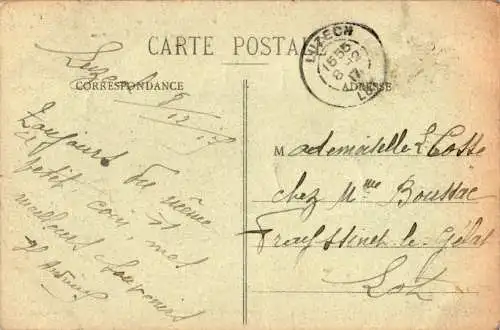 CARTE POSTALE
CORRESPONDANCE
ADRESSE
LUZECH
1555
8-12
17
LOT
Luzech
8/12/17
Toujours du même
petit coin, mes
meilleurs souvenirs
Mademoiselle L Cosse
chez Mme Boussac
Frayssinet-le-Gélat
Lot